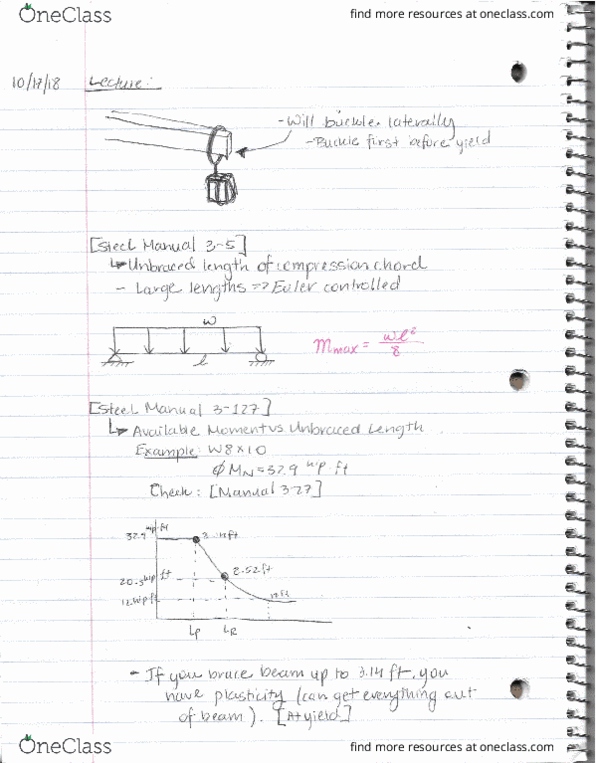 OneClass
find more resources at oneclass.com
10/17/18 Lecture:
- Will buckle laterally
- Buckle first before yield
[Steel Manual 3-5]
↳ Unbraced length of compression chord
- Large lengths => Euler controlled
w
l
Mmax = wl²/8
[Steel Manual 3-127]
↳ Available Moment vs Unbraced Length
Example: W8x10
ϕMN = 32.9 kip ft
Check: [Manual 3-27]
32.9 kip ft
ft
2.52 ft
20.5 kip ft
12 kip ft
LP
LR
- If you brace beam up to 3.14 ft, you
have plasticity (can get everything out
of beam). [At yield]
OneClass
find more resources at oneclass.com